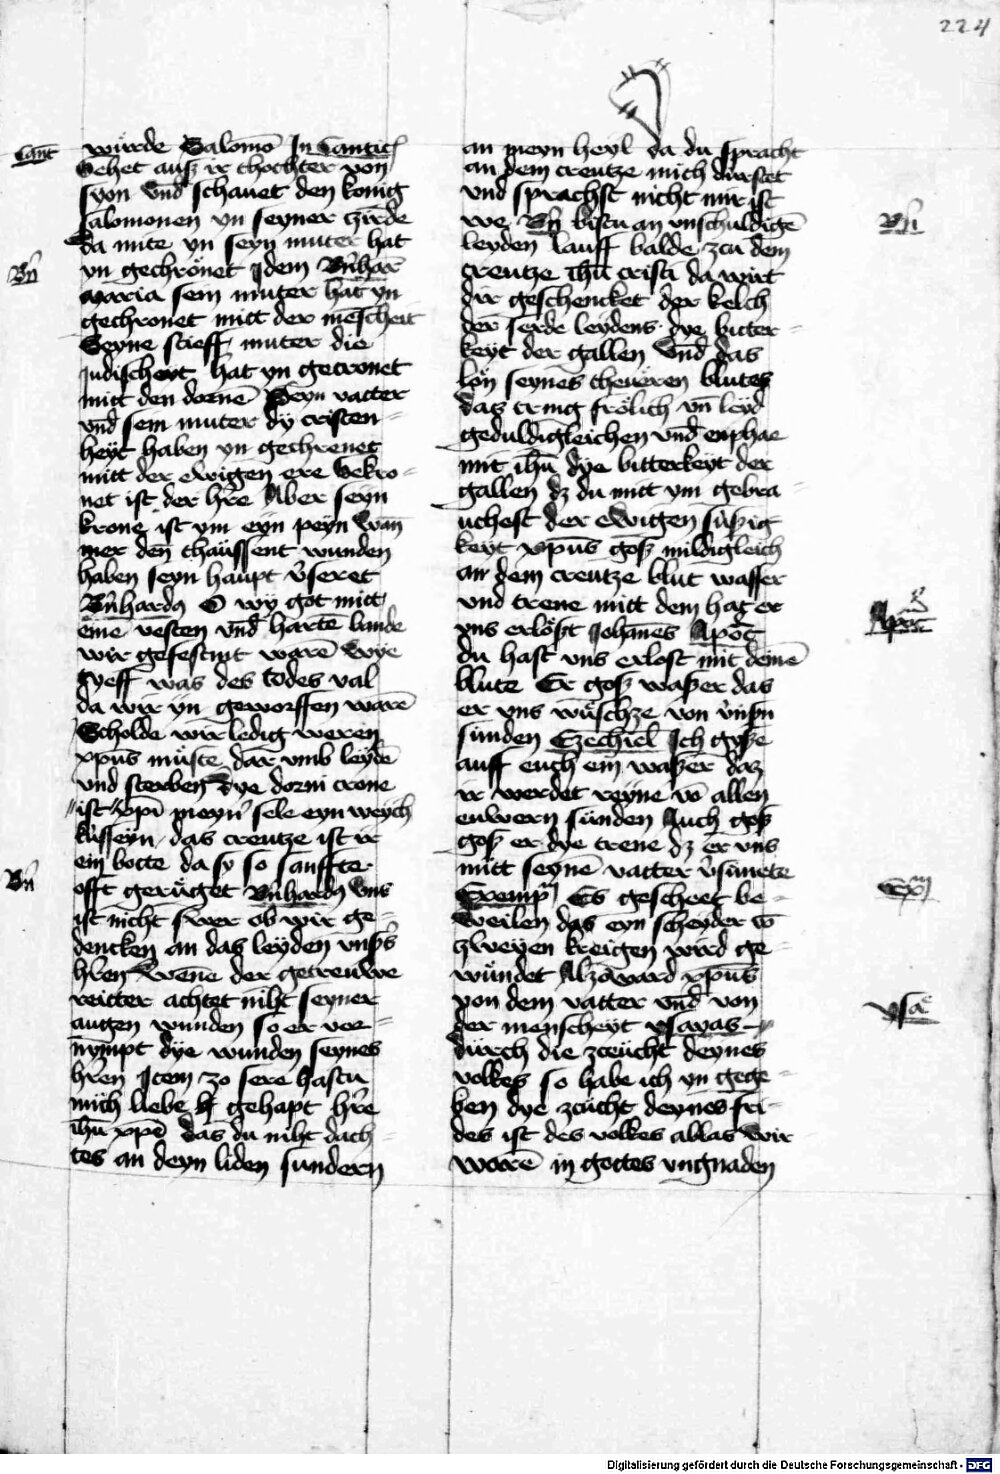 224
Cant
würde Salomō In Cantic̄
Sehet ausz ir thochter von
syon vnd schauet den konig
salomonen yn seyner zirde
da mite yn seyn muter hat
Bn̄
yn gechrönet Idem Bn̄har̄
maria sein muter hat yn
gechronet mitt der mēscheit
Seyne stieff muter die
Judischeyt hat yn gecronet
mitt den dornē Seyn vatter
vnd sein muter dy cristen-
heyt haben yn gechrenet
mitt der ewigen ere bekro-
net ist der hr̄e Aber seyn
krone ist ym eyn peyn wan
mer den thaüssent wunden
haben seyn haupt v̄seret
Bn̄hardꝯ O wy got mitt
eine vesten vnd harte bande
wir gefestint warē Wye
tyeff was des todes val
da wir yn geworffen warē
Scholde wir ledig weren
xp̄us müste dar vmb leydē
vnd sterben Dye dorni crone
ist xp̄i meynr̄ sele eyn weych
küsseyn das creutze ist ir
ein bette da sy so sanffte
Bn̄
offt gerüget Bn̄hardꝯ Vns
ist nicht swer ob wir ge-
dencken an das leyden vnsr̄s
hr̄en Wene der getreuwe
reitter achtet niht seyner
augen wunden so er ver-
nympt dye wunden seynes
hr̄en Item zo sere hastu
mich liebe gehapt hr̄e
ih̄u xp̄e das du niht dach-
tes an deyn liden sundern
an meyn heyl da du spracht
an dem creutze mich dürstet
vnd sprachst nicht mir ist
Bn̄
we Bn̄ bistu an vnschuldigē
leyden lauff balde zcu dem
creutze ih̄u cristi da wirt
dir geschencket der kelch
der serde leydens dye bitter-
keyt der gallen vnd das
lön seynes theuͤren blutes
das tring frölich vn̄ leyd
geduldigleichen vnd enphae
mit ih̄u dye bitterkeyt der
gallen dz du mitt ym gebra-
uchest der ewigen süszig
keyt xp̄us gosz mildigleich
an dem creutze blut wasser
vnd trene mitt dem hat er
Apoc
vns erlöszt Johannes Apoc̄
du hast vns erlost mit deinē
blute Er gosz waszer das
er vns wüschze von vnsn̄
sünden Ezechiel Ich gysze
auff euch ein waszer daz
ir werdet reyne vō allen
enwern sünden Auch gosz
gosz er dye trene dz er vns
mitt seynē vatter v̄sünete
Exm̄
Exemp̄ Es gescheet be-
weilen das eyn scheyder vō
zweyen kreigen wird ge-
wündet Alzo ward xp̄us
von dem vatter vnd von
ysae
der menscheyt ysayas
dürch die zcücht deynes
volkes so habe ich yn gege-
ben dye zcücht deynes fri-
des ist des volkes allas wir
worē in gottes vngnaden
Digitalisierung gefördert durch die Deutsche Forschungsgemeinschaft - DFG